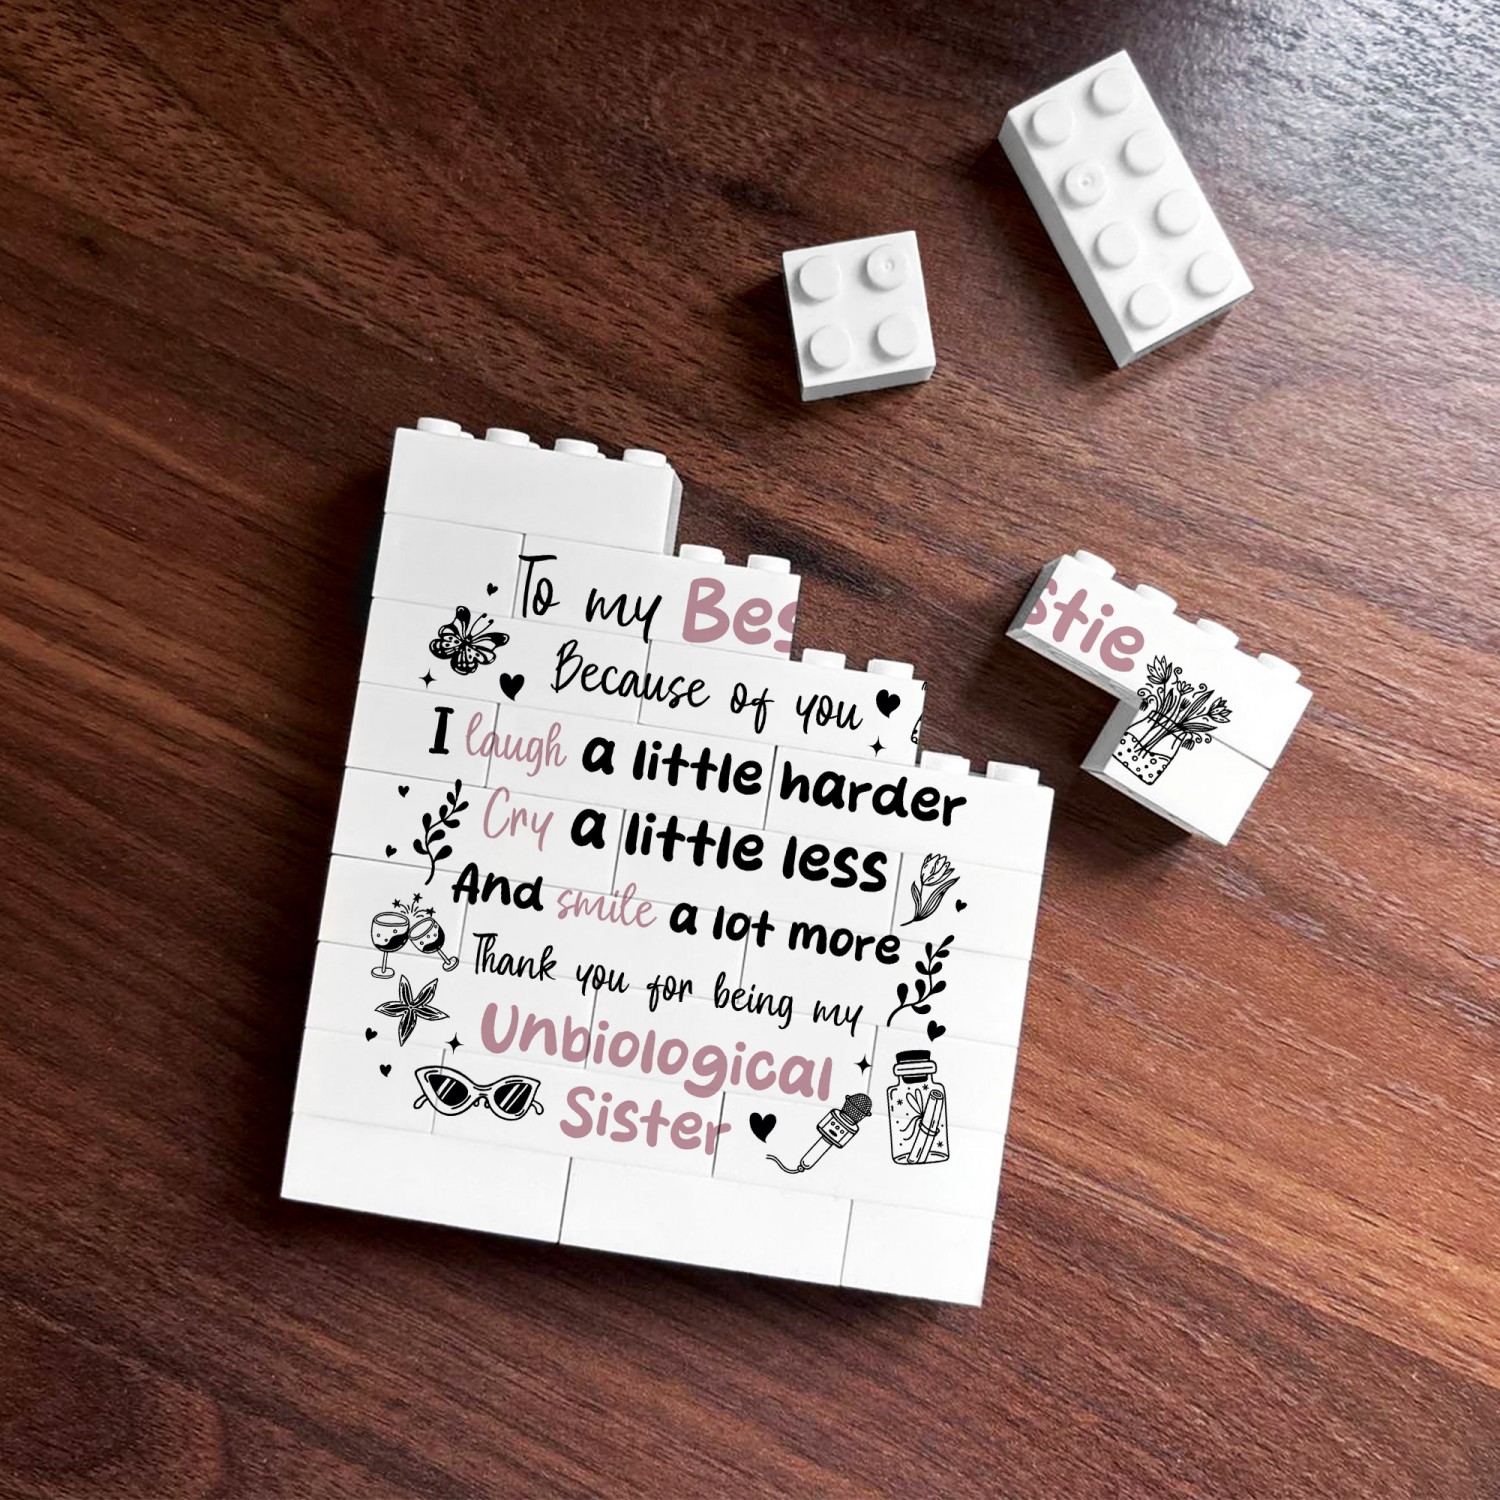 To my Bestie
Because of you
I laugh a little harder
Cry a little less
And smile a lot more
Thank you for being my
Unbiological
Sister